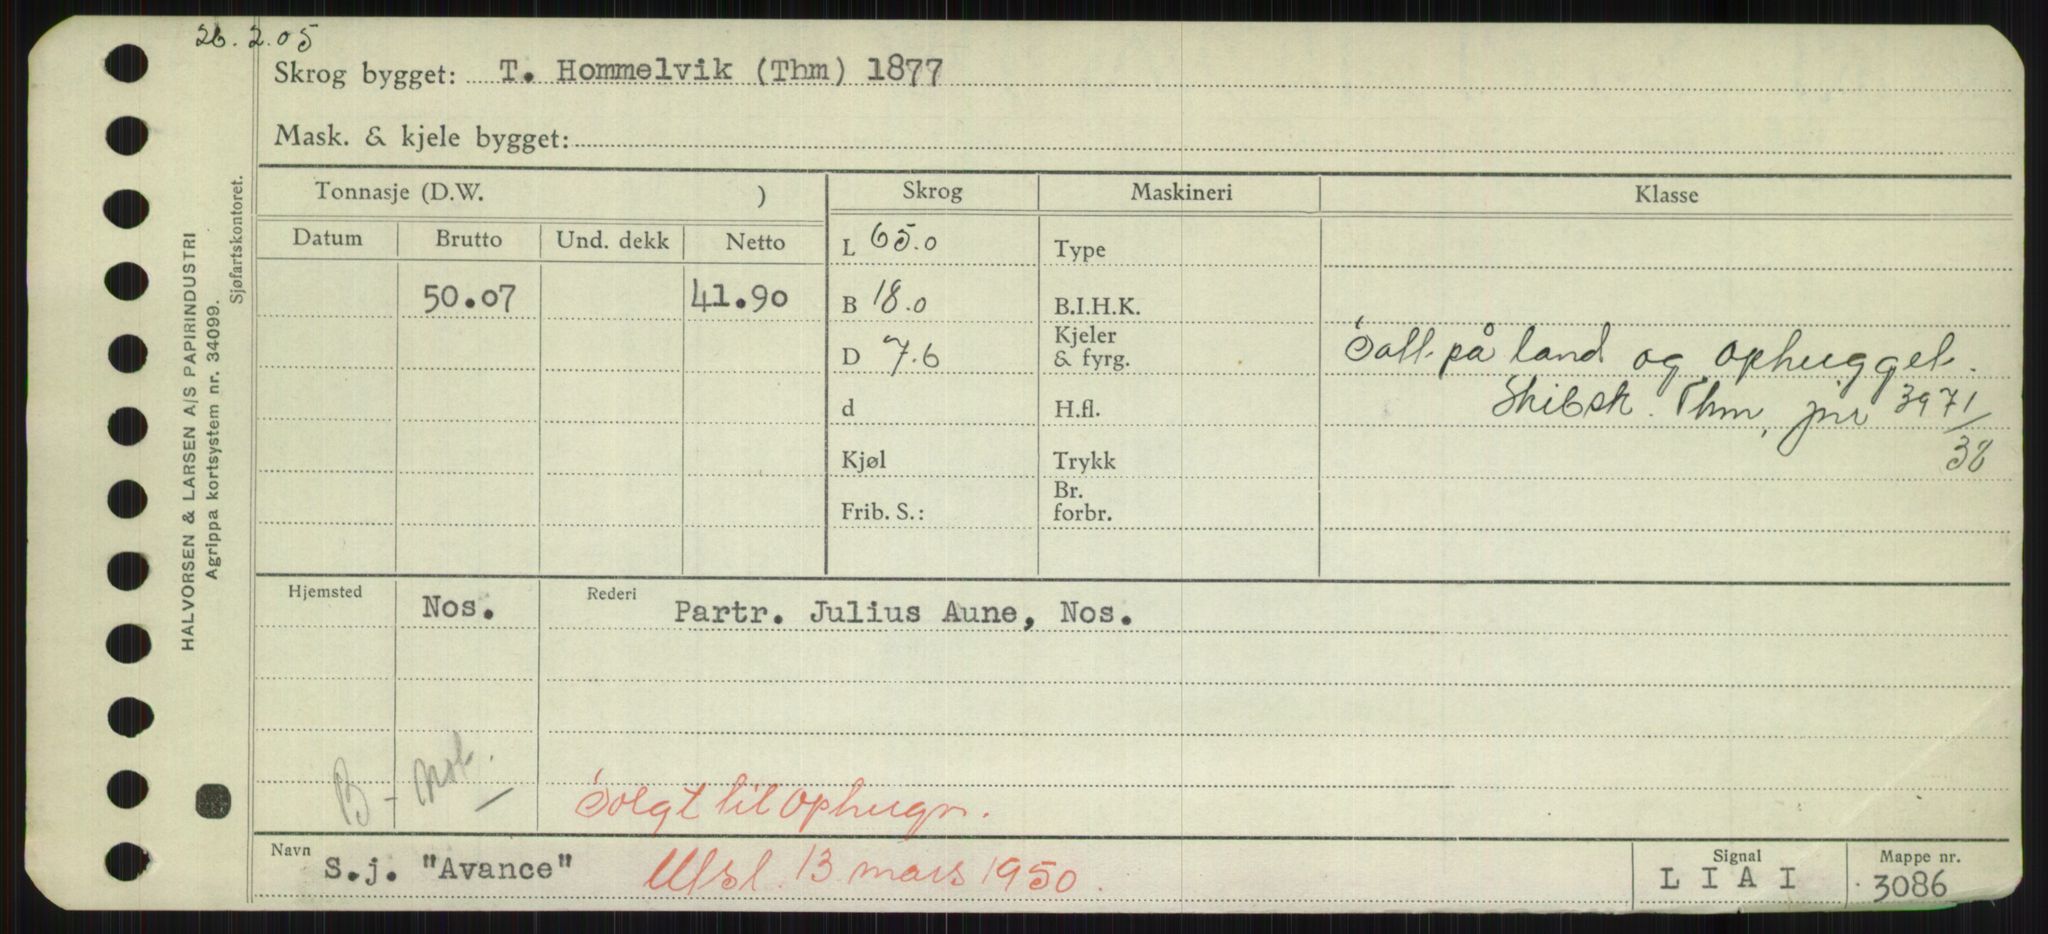 26.2.05
Skrog bygget: T. Hommelvik (Thm) 1877
Mask. & kjele bygget:
HALVORSEN & LARSEN A/S PAPIRINDUSTRI
Agrippa kortsystem nr. 34099.
Sjøfartskontoret.
Tonnasje (D.W. ) Skrog Maskineri Klasse
Datum Brutto Und. dekk Netto L 65.0 Type
50.07 41.90 B 18.0 B.I.H.K.
D 7.6 Kjeler & fyrg. Satt på land og ophugget.
d H.fl. Skibsk. Thm, jnr 3971/38
Kjøl Trykk
Frib. S.: Br. forbr.
Hjemsted Nos. Rederi Partr. Julius Aune, Nos.
B-
Solgt til ophugn.
Navn S.j. "Avance" Utsl. 13 mars 1950. Signal L I A I Mappe nr. 3086